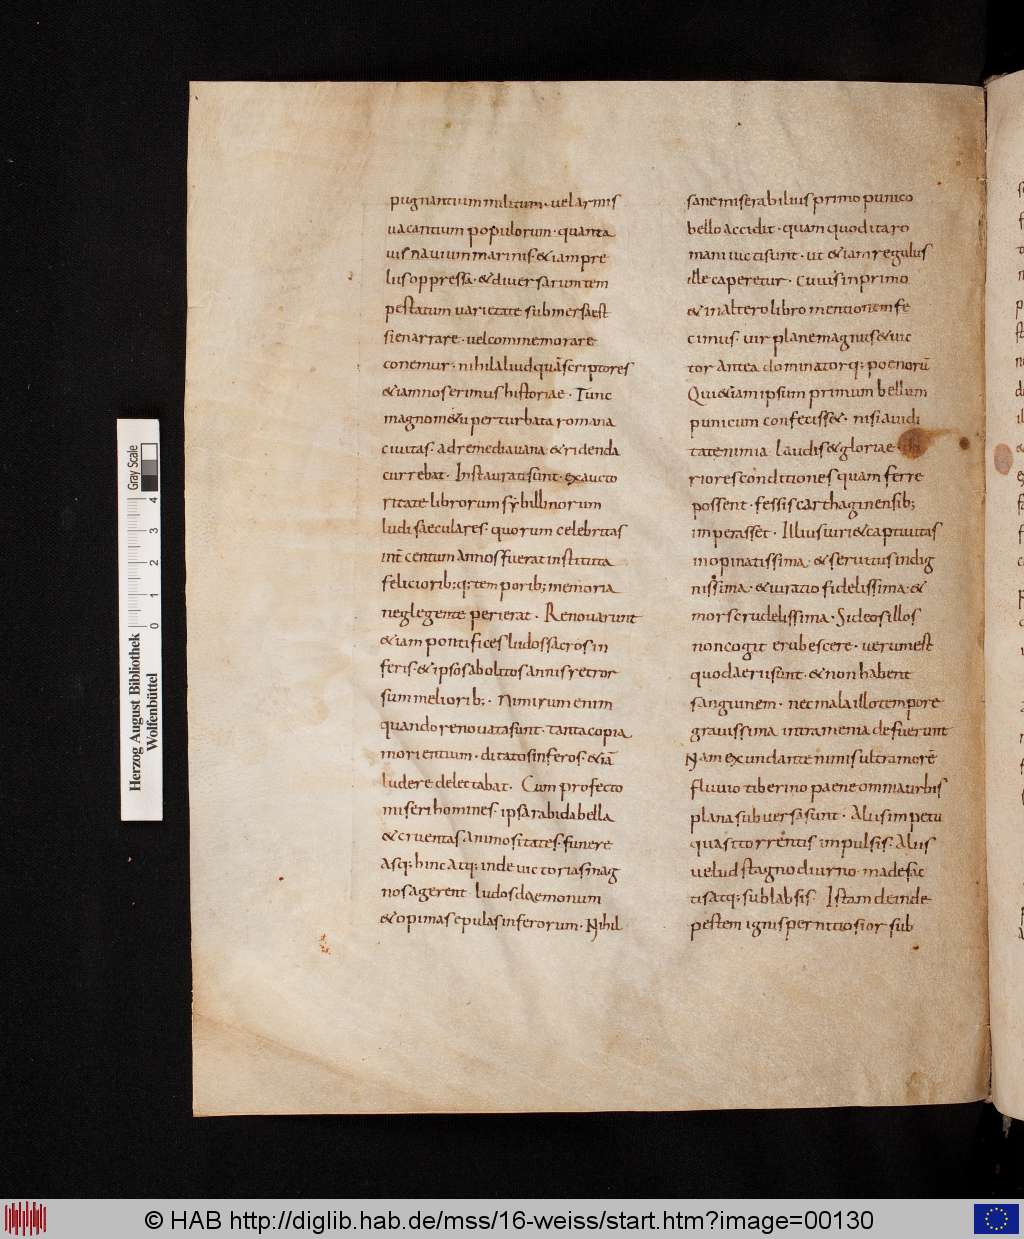 pugnantium militum · vel armis
vacantium populorum · quanta
vis navium marinis · & iam pre
liis oppressa · & diversarum tem
pestatum varietate submersa est
si enarrare · vel commemorare
conemur · nihil aliud quā scriptores
& iam nos erimus historiae · Tunc
magno m&u perturbata romana
civitas · ad remedia vana & ridenda
currebat · Instaurati sunt · ex aucto
ritate librorum sybillinorum
ludi saeculares · quorum celebritas
int̄ centum annos fuerat instituta
feliciorib;q; temporib; memoria
neglegente perierat · Renovarunt
& iam pontifices ludos sacros in
feris · & ipsos abolitos annis retror
sum meliorib; · Nimirum enim
quando renovata sunt · tanta copia
morientium · ditatos inferos · & iā
ludere delectabat · Cum profecto
miseri homines · ipsa rabida bella
& cruentas animositates · funere
asq; hinc atq; inde victorias mag
nos agerent ludos daemonum
& opimas epulas inferorum · Nihil
sane miserabilius primo punico
bello accidit · quam quod ita ro
mani victi sunt · ut & iam regulus
ille caperetur · cuius in primo
& in altero libro mentionem fe
cimus · vir plane magnus & vic
tor antea dominatorq; poenorū
Qui & iam ipsum primum bellum
punicum confecisse& · nisi avidi
tate nimia laudis & gloriae ·
riores conditiones quam ferre
possent · fessis carthaginensib;
imperasset · Illius viri & captivitas
inopinatissima · & servitus indig
nissima · & iuratio fidelissima · &
mors crudelissima · Si deos illos
non cogit erubescere · verum est
quod aerii sunt · & non habent
sanguinem · nec mala illo tempore
gravissima intra menia defuerunt
Nam exundante nimis ultra morē
fluvio tiberino paene omnia urbis
plana subversa sunt · Aliis impetu
quasi torrentis impulsis · Aliis
velud stagno diurno madefac
tis atq; sublabsis · Istam deinde
pestem ignis perniciosior sub
Herzog August Bibliothek
Wolfenbüttel
Gray Scale
0 1 2 3 4
© HAB http://diglib.hab.de/mss/16-weiss/start.htm?image=00130